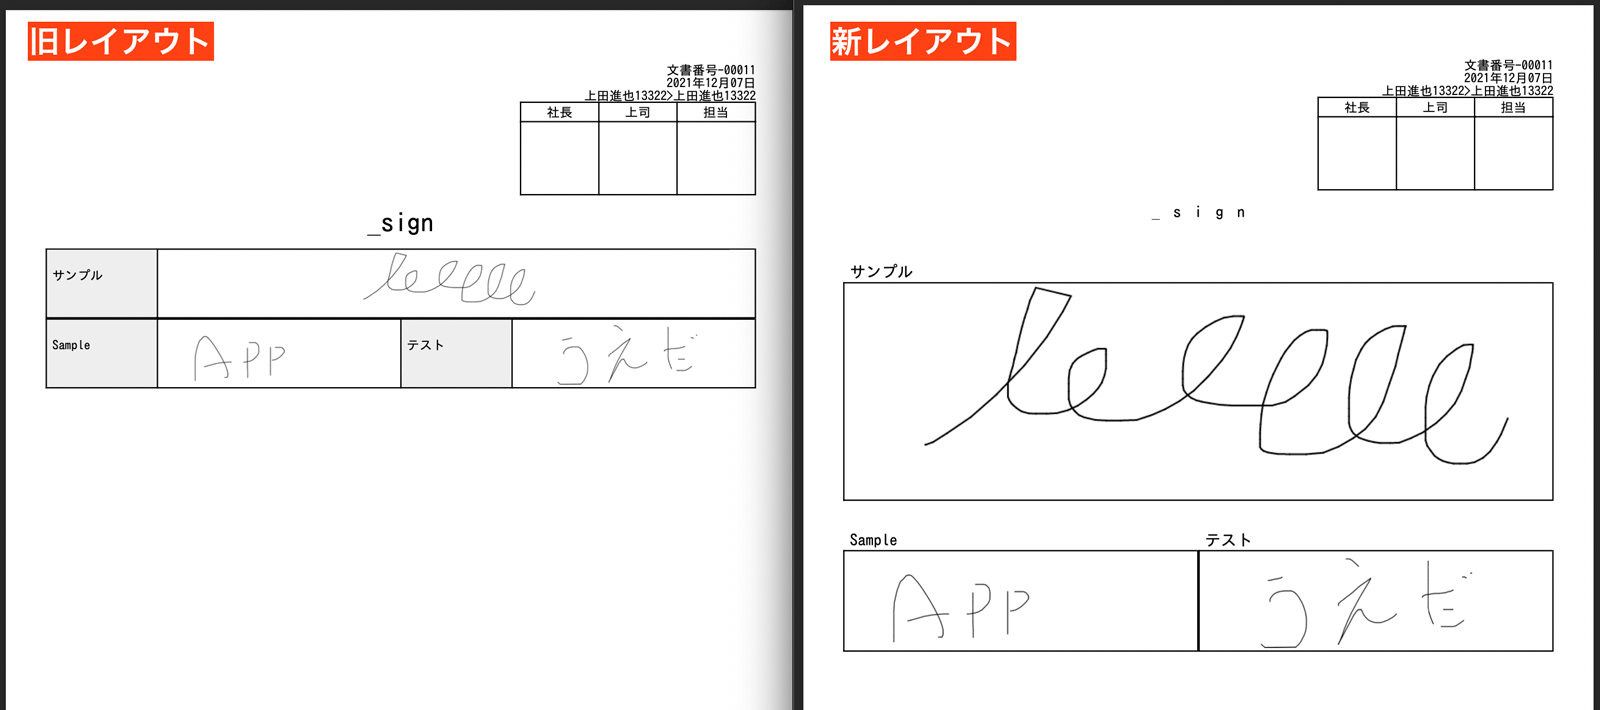 旧レイアウト
文書番号-00011
2021年12月07日
上田進也13322>上田進也13322
社長 上司 担当
_sign
サンプル
Sample APP テスト うえだ
新レイアウト
文書番号-00011
2021年12月07日
上田進也13322>上田進也13322
社長 上司 担当
_sign
サンプル
Sample テスト
APP うえだ